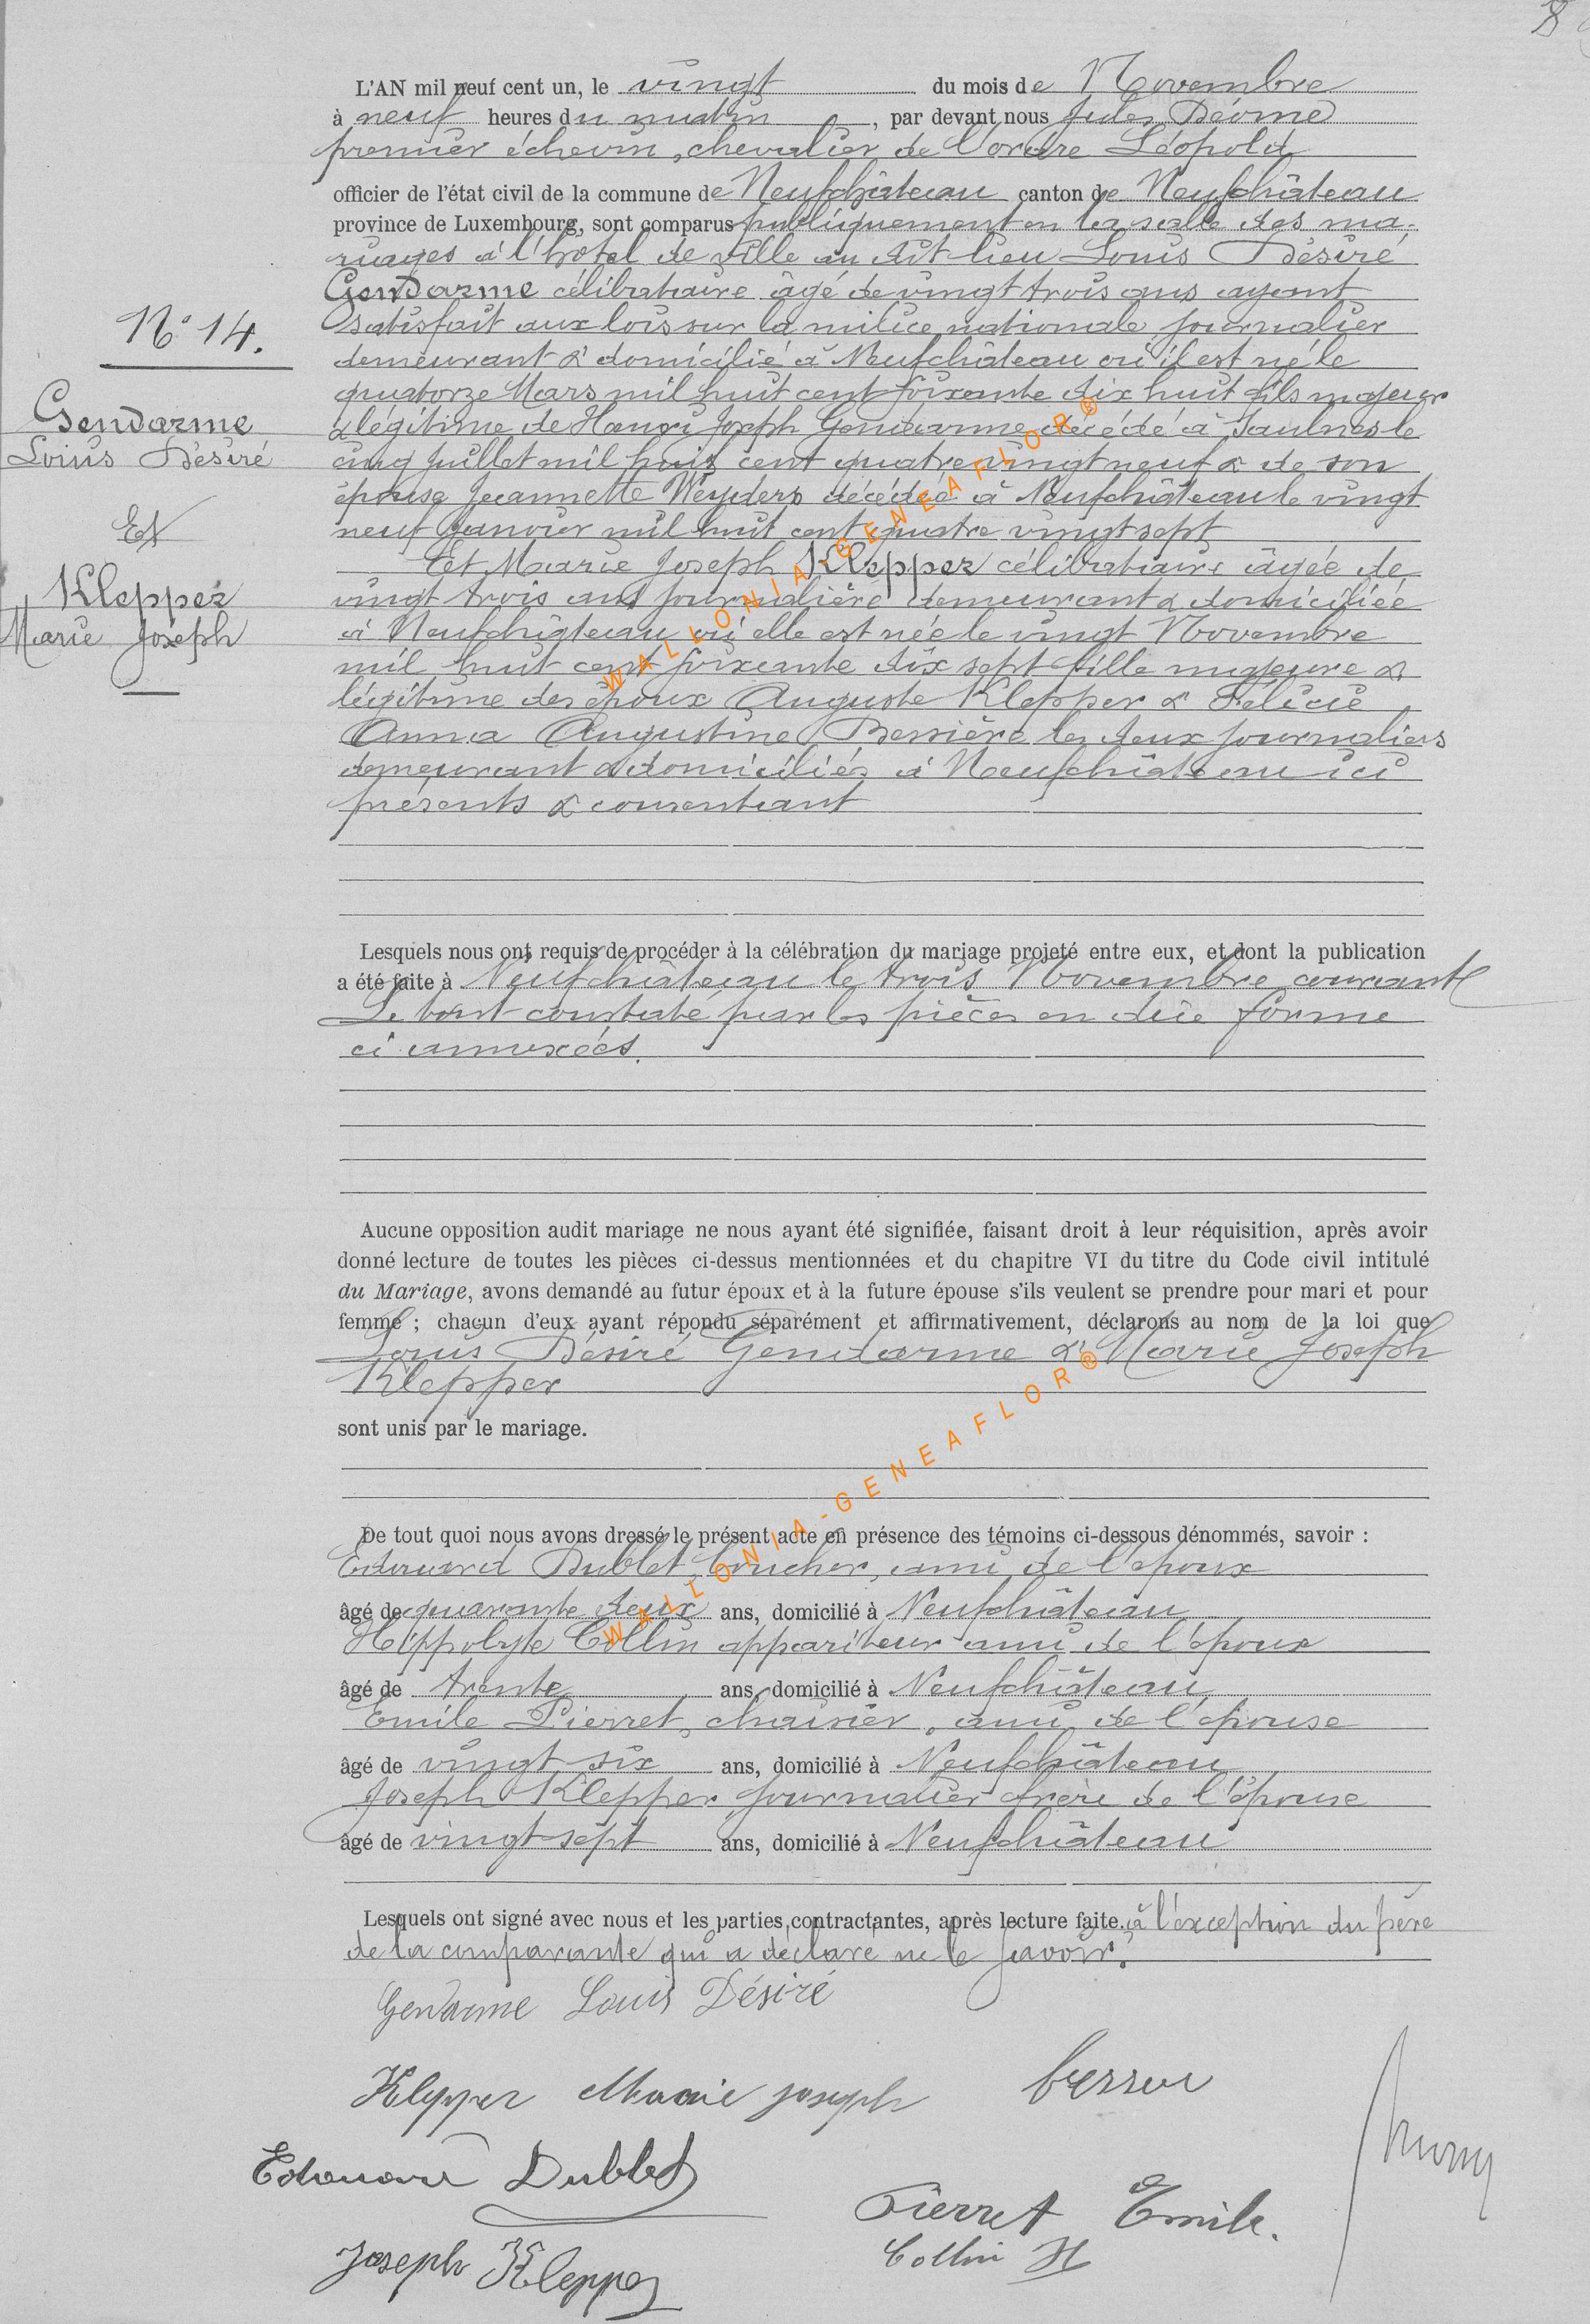 L'AN mil neuf cent un, le vingt du mois de Novembre
à neuf heures du matin, par devant nous Jules
premier échevin, chevalier de l'ordre Léopold
officier de l'état civil de la commune de Neufchâteau canton de Neufchâteau
province de Luxembourg, sont comparus publiquement en la salle des ma-
riages à l'hôtel de ville au dit lieu Louis Désiré
Gendarme célibataire âgé de vingt trois ans ayant
satisfait aux lois sur la milice nationale journalier
demeurant & domicilié à Neufchâteau où il est né le
quatorze Mars mil huit cent soixante dix huit fils majeur
& légitime de Henri Joseph Gendarme décédé à Saulnes le
cinq Juillet mil huit cent quatre vingt neuf & de son
épouse Jeannette Weyders décédée à Neufchâteau le vingt
neuf Janvier mil huit cent quatre vingt sept
Et Marie Joseph Klepper célibataire âgée de
vingt trois ans journalière demeurant & domiciliée
à Neufchâteau où elle est née le vingt Novembre
mil huit cent soixante dix sept fille majeure &
légitime des époux Auguste Klepper & Félicie
Anna Augustine Bessière les deux journaliers
demeurant & domiciliés à Neufchâteau ici
présents & consentant
N° 14.
Gendarme
Louis Désiré
Et
Klepper
Marie Joseph
Lesquels nous ont requis de procéder à la célébration du mariage projeté entre eux, et dont la publication
a été faite à Neufchâteau le trois Novembre courant
Le tout constaté par les pièces en due forme
ci annexées.
Aucune opposition audit mariage ne nous ayant été signifiée, faisant droit à leur réquisition, après avoir
donné lecture de toutes les pièces ci-dessus mentionnées et du chapitre VI du titre du Code civil intitulé
du Mariage, avons demandé au futur époux et à la future épouse s'ils veulent se prendre pour mari et pour
femme ; chacun d'eux ayant répondu séparément et affirmativement, déclarons au nom de la loi que
Louis Désiré Gendarme & Marie Joseph
Klepper
sont unis par le mariage.
De tout quoi nous avons dressé le présent acte en présence des témoins ci-dessous dénommés, savoir :
Edouard Dublet, boucher, ami de l'époux
âgé de quarante deux ans, domicilié à Neufchâteau
Hippolyte Collin appariteur ami de l'époux
âgé de trente ans, domicilié à Neufchâteau
Emile Pierret, chaisier, ami de l'épouse
âgé de vingt six ans, domicilié à Neufchâteau
Joseph Klepper journalier frère de l'épouse
âgé de vingt sept ans, domicilié à Neufchâteau
Lesquels ont signé avec nous et les parties contractantes, après lecture faite. à l'exception du père
de la comparante qui a déclaré ne le savoir.
Gendarme Louis Désiré
Klepper Marie joseph
Edouard Dublet
Pierret Emile.
Joseph Klepper
Collin H
WALLONIA-GENEAFLOR®
WALLONIA-GENEAFLOR®